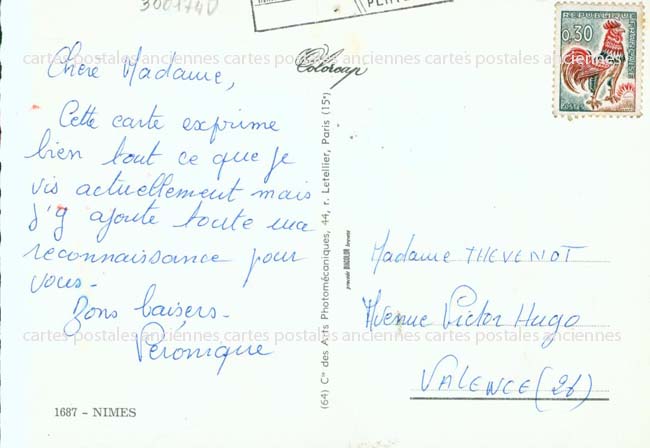 3001740
Colorcap
REPUBLIQUE FRANÇAISE
0,30
POSTES
Chère Madame,
Cette carte exprime
bien tout ce que je
vis actuellement mais
j'y ajoute toute ma
reconnaissance pour
vous.
Bons baisers.
Véronique
1687 - NIMES
(64) Cie des Arts Photomécaniques, 44, r. Letellier, Paris (15e)
procédé DIACOLOR breveté
Madame THEVENOT
Avenue Victor Hugo
VALENCE (26)
cartes postales anciennes cartes postales anciennes cartes postales anciennes
cartes postales anciennes cartes postales anciennes cartes postales anciennes